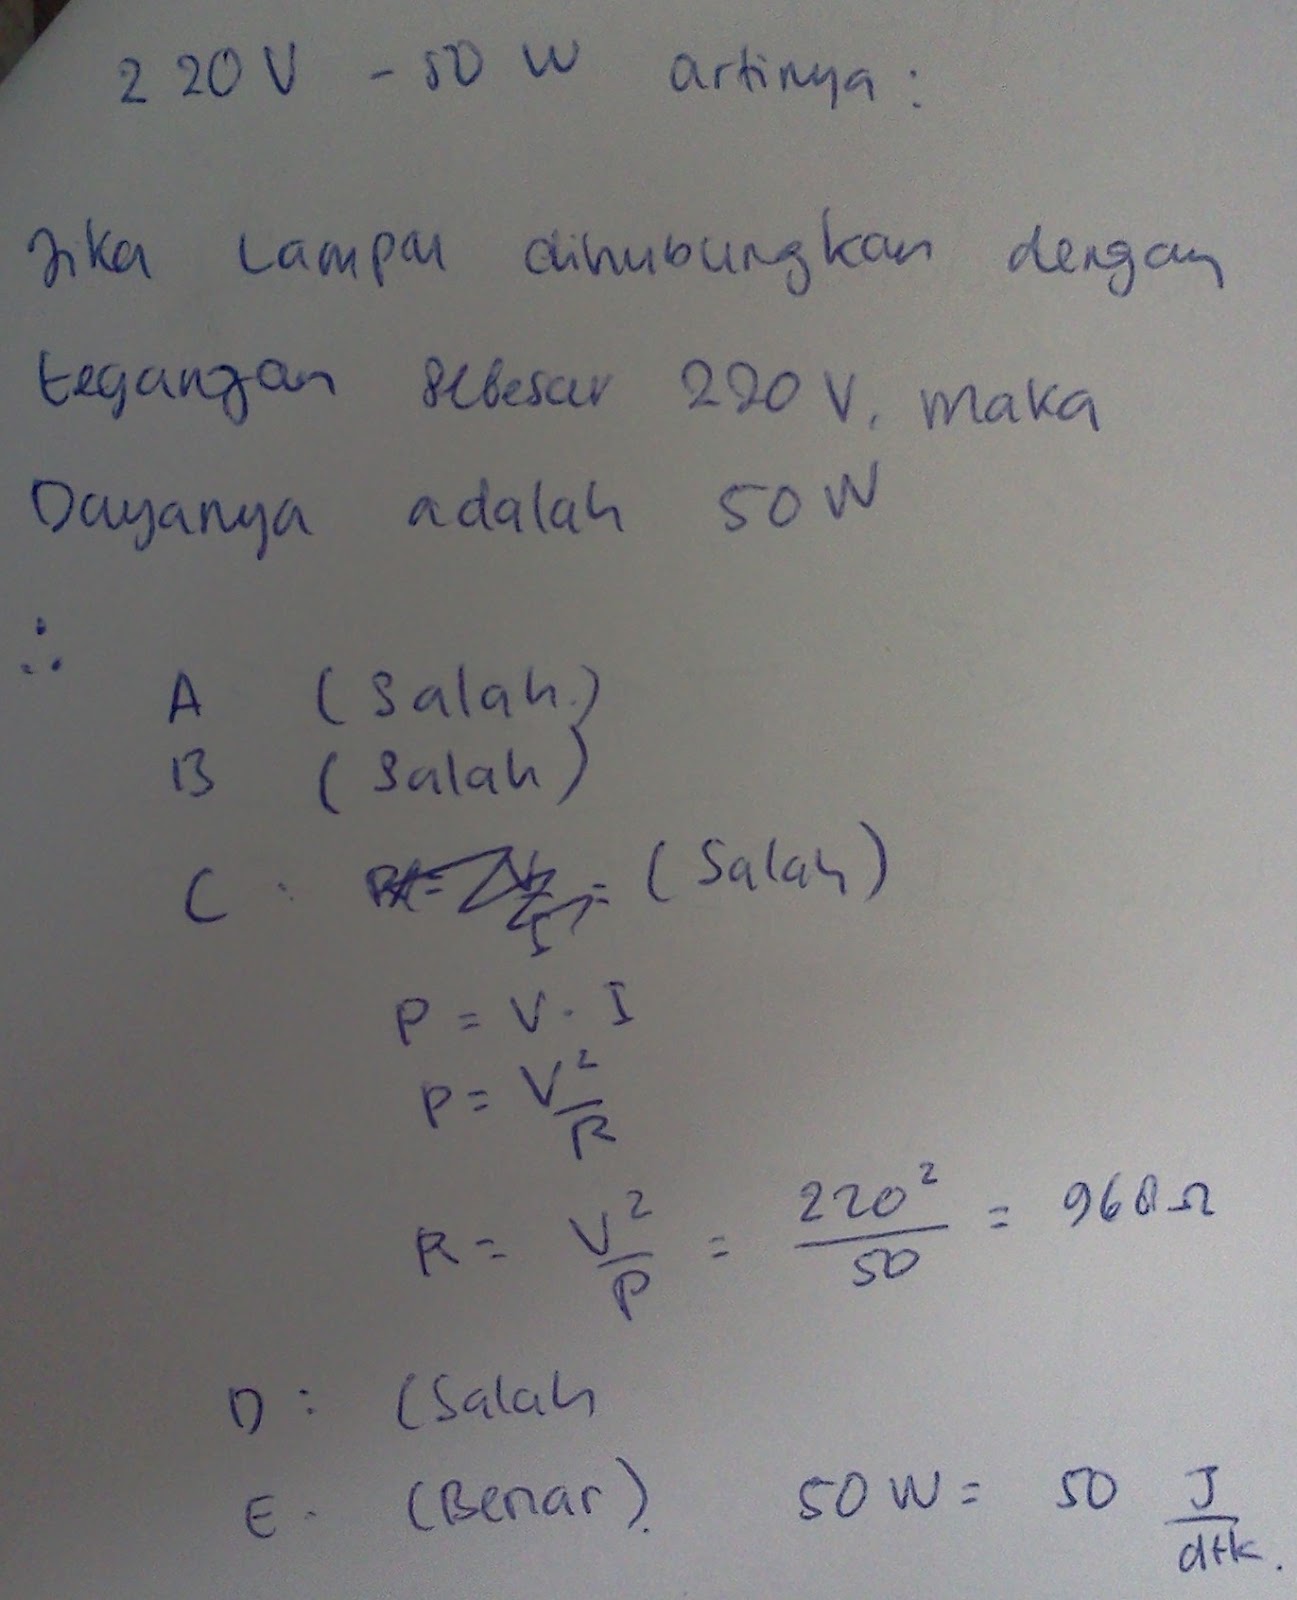 220 V - 50 W artinya :
Jika Lampu dihubungkan dengan
tegangan sebesar 220 V, maka
Dayanya adalah 50 W
∴
A (Salah)
B (Salah)
C : (Salah)
P = V . I
P = V²/R
R = V²/P = 220²/50 = 968 Ω
D : (Salah
E . (Benar). 50 W = 50 J/dtk.